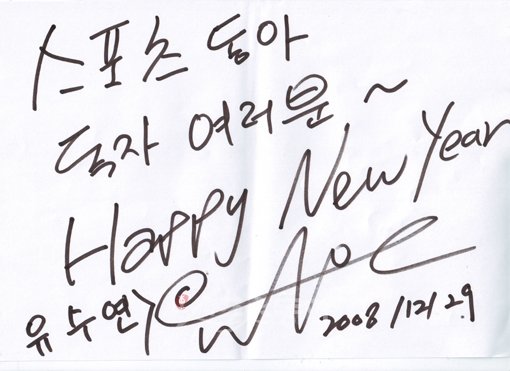 스포츠 동아
독자 여러분 ~
Happy New Year
유수연
2008/12/29